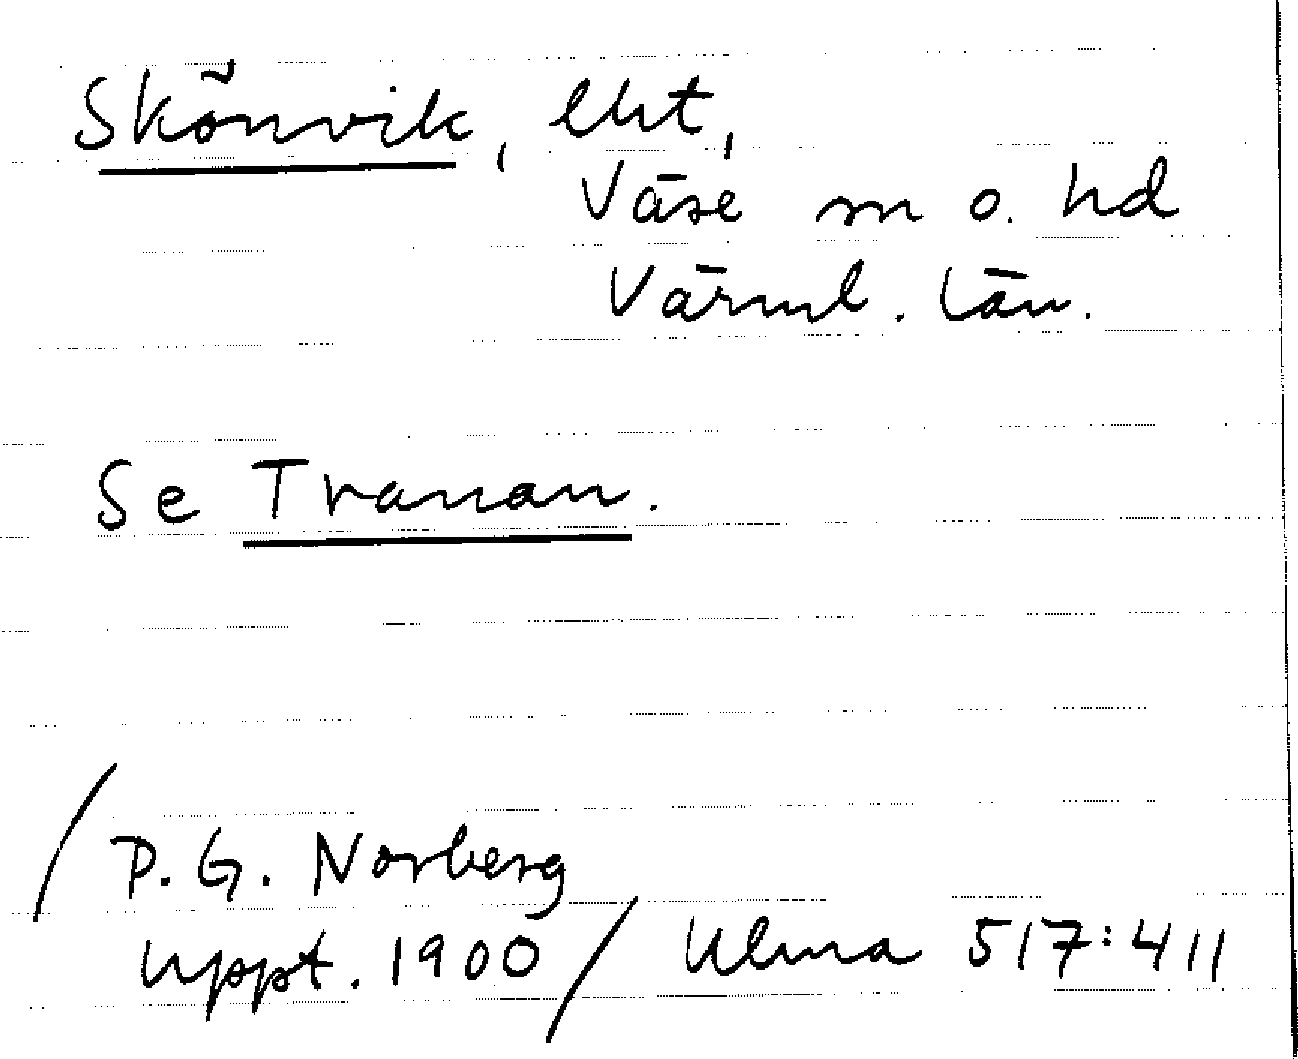 Skönvik, lht,
Väse sn o. hd
Värml. län.
Se Tranan.
/ P. G. Norberg
uppt. 1900 / Ulma 517:411